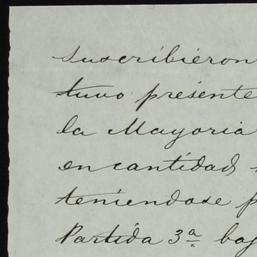 suscribieron
tuvo presente
la Mayoria
en cantidad
teniendose p
Partida 3ª baj